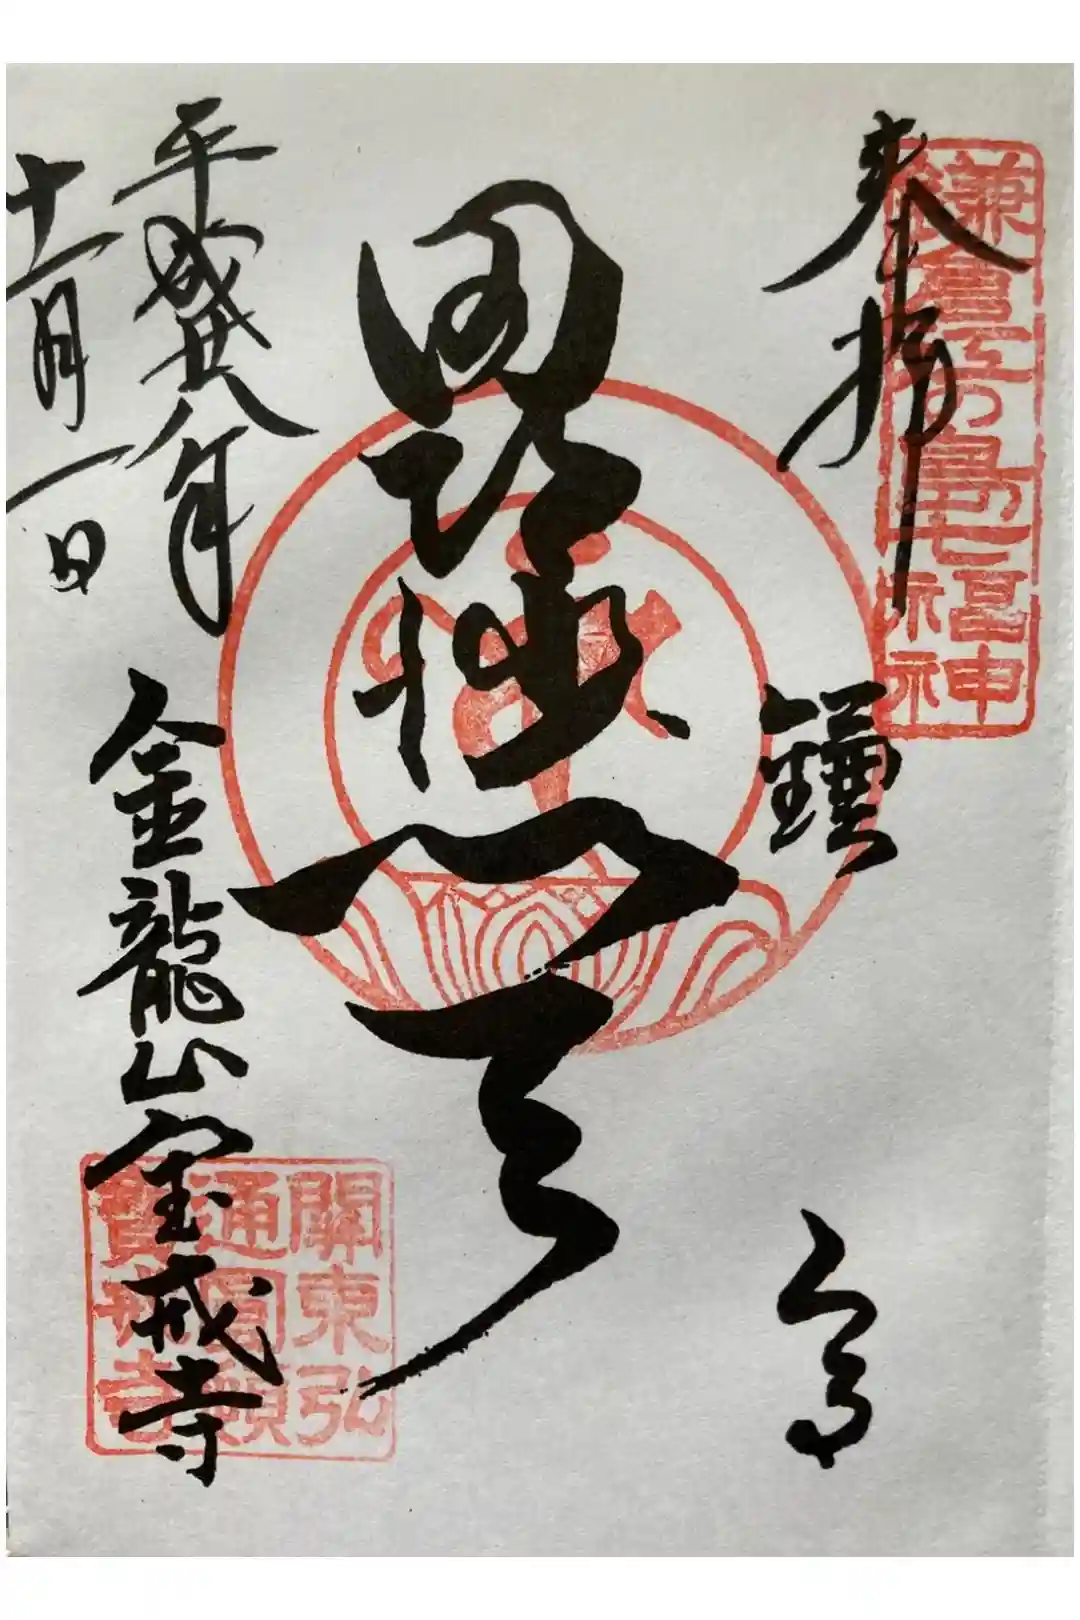 鎌倉江の島七福神
奉拝
鎌倉
毘沙門天
平成廿八年
十一月一日
金龍山宝戒寺
關東弘
通圓頓
寶戒寺